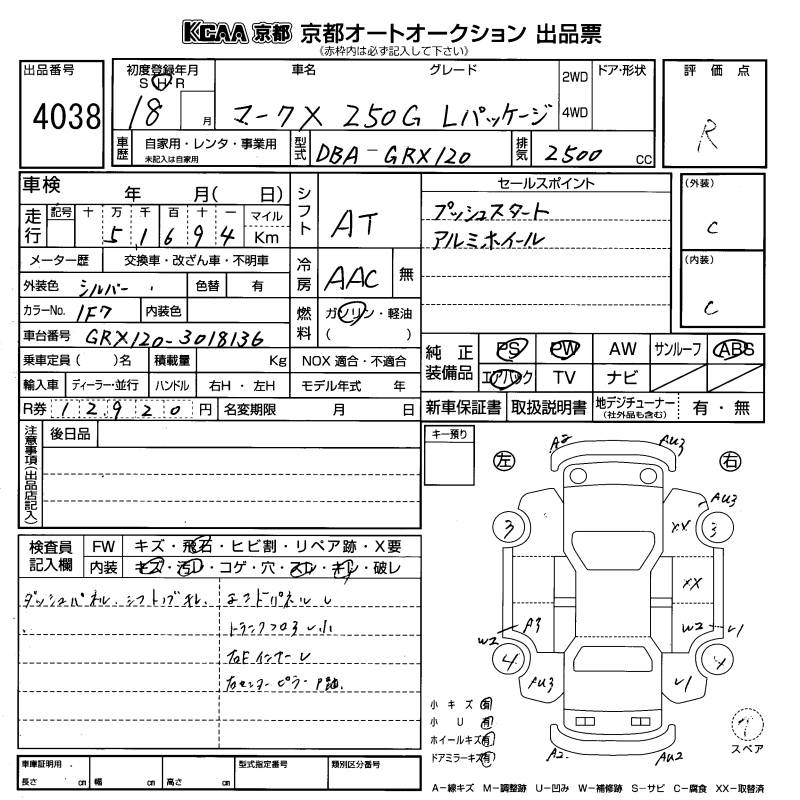 KCAA 京都 京都オートオークション 出品票
(赤枠内は必ず記入して下さい)
出品番号 初度登録年月 車名 グレード 2WD ドア・形状 評価点
S H R
4038 18 月 マークX 250G Lパッケージ 4WD R
車歴 自家用・レンタ・事業用 型式 DBA-GRX120 排気 2500 CC
未記入は自家用
車検 年 月( 日) シフト AT セールスポイント (外装)
走行 記号 十 万 千 百 十 一 マイル プッシュスタート C
5 1 6 9 4 Km アルミホイール
メーター歴 交換車・改ざん車・不明車 冷房 AAC 無 (内装)
外装色 シルバー 色替 有 C
カラーNo. 1F7 内装色 燃料 ガソリン・軽油
車台番号 GRX120-3018136 ( )
乗車定員( )名 積載量 Kg NOX 適合・不適合 純正装備品 PS PW AW サンルーフ ABS
輸入車 ディーラー・並行 ハンドル 右H・左H モデル年式 年 エアバック TV ナビ
R券 1 2 9 2 0 円 名変期限 月 日 新車保証書 取扱説明書 地デジチューナー 有・無
(社外品も含む)
注意事項(出品店記入) 後日品 キー預り
左 右
A2 AU3
AU3
3 XX 3
XX
W2 A3 W2 U1
4 AU3 U1 4
A2 AU2
検査員記入欄 FW キズ・飛石・ヒビ割・リペア跡・X要
内装 キズ・汚レ・コゲ・穴・スレ・キレ・破レ
ダッシュパネル、
トランクフロア
右センターピラー
小キズ 有
小U 有
ホイールキズ 有
ドアミラーキズ 有
スペア
車庫証明用 長さ cm 幅 cm 高さ cm 型式指定番号 類別区分番号
A-線キズ M-調整跡 U-凹み W-補修跡 S-サビ C-腐食 XX-取替済